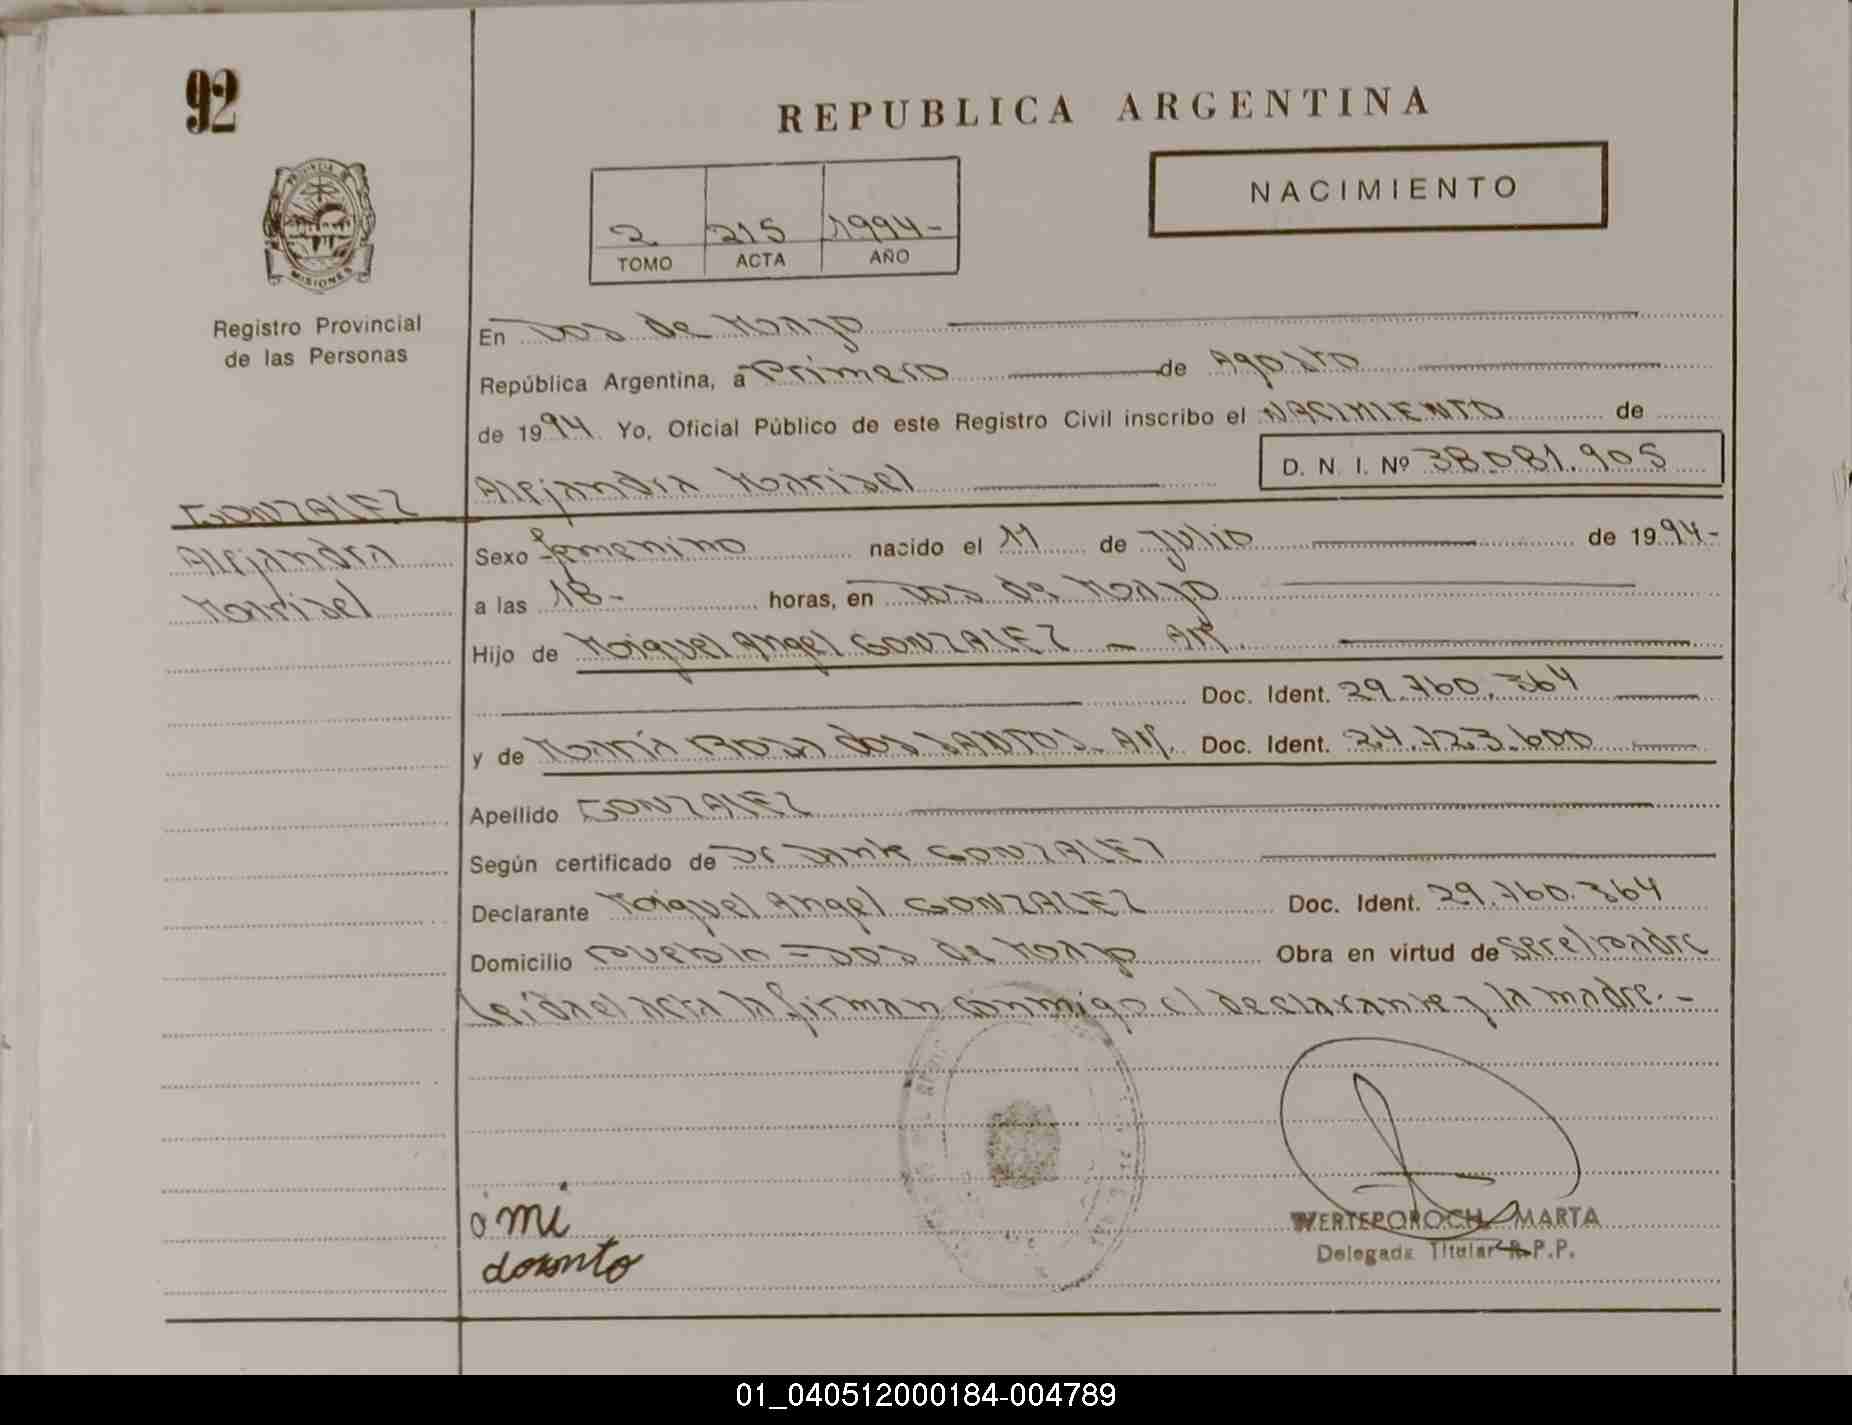 92
REPUBLICA ARGENTINA
NACIMIENTO
2 215 1994-
TOMO ACTA AÑO
PROVINCIA DE
MISIONES
Registro Provincial
de las Personas
En Dos de Mayo
República Argentina, a Primero de Agosto
de 1994 Yo, Oficial Público de este Registro Civil inscribo el NACIMIENTO de
Alejandra Marisel D. N. I. Nº 38.081.905
GONZALEZ
Alejandra
Marisel
Sexo femenino nacido el 11 de Julio de 1994-
a las 18- horas, en Dos de Mayo
Hijo de Miguel Angel GONZALEZ - Arg.
Doc. Ident. 29.760.364
y de María Rosa dos SANTOS. Arg. Doc. Ident. 24.723.600
Apellido GONZALEZ
Según certificado de Dr Dante GONZALEZ
Declarante Miguel Angel GONZALEZ Doc. Ident. 29.760.364
Domicilio Pueblo - Dos de Mayo Obra en virtud de ser el padre
Leida el acta la firman conmigo el declarante y la madre.-
WERTEPOROCH MARTA
Delegada Titular R.P.P.
01_040512000184-004789